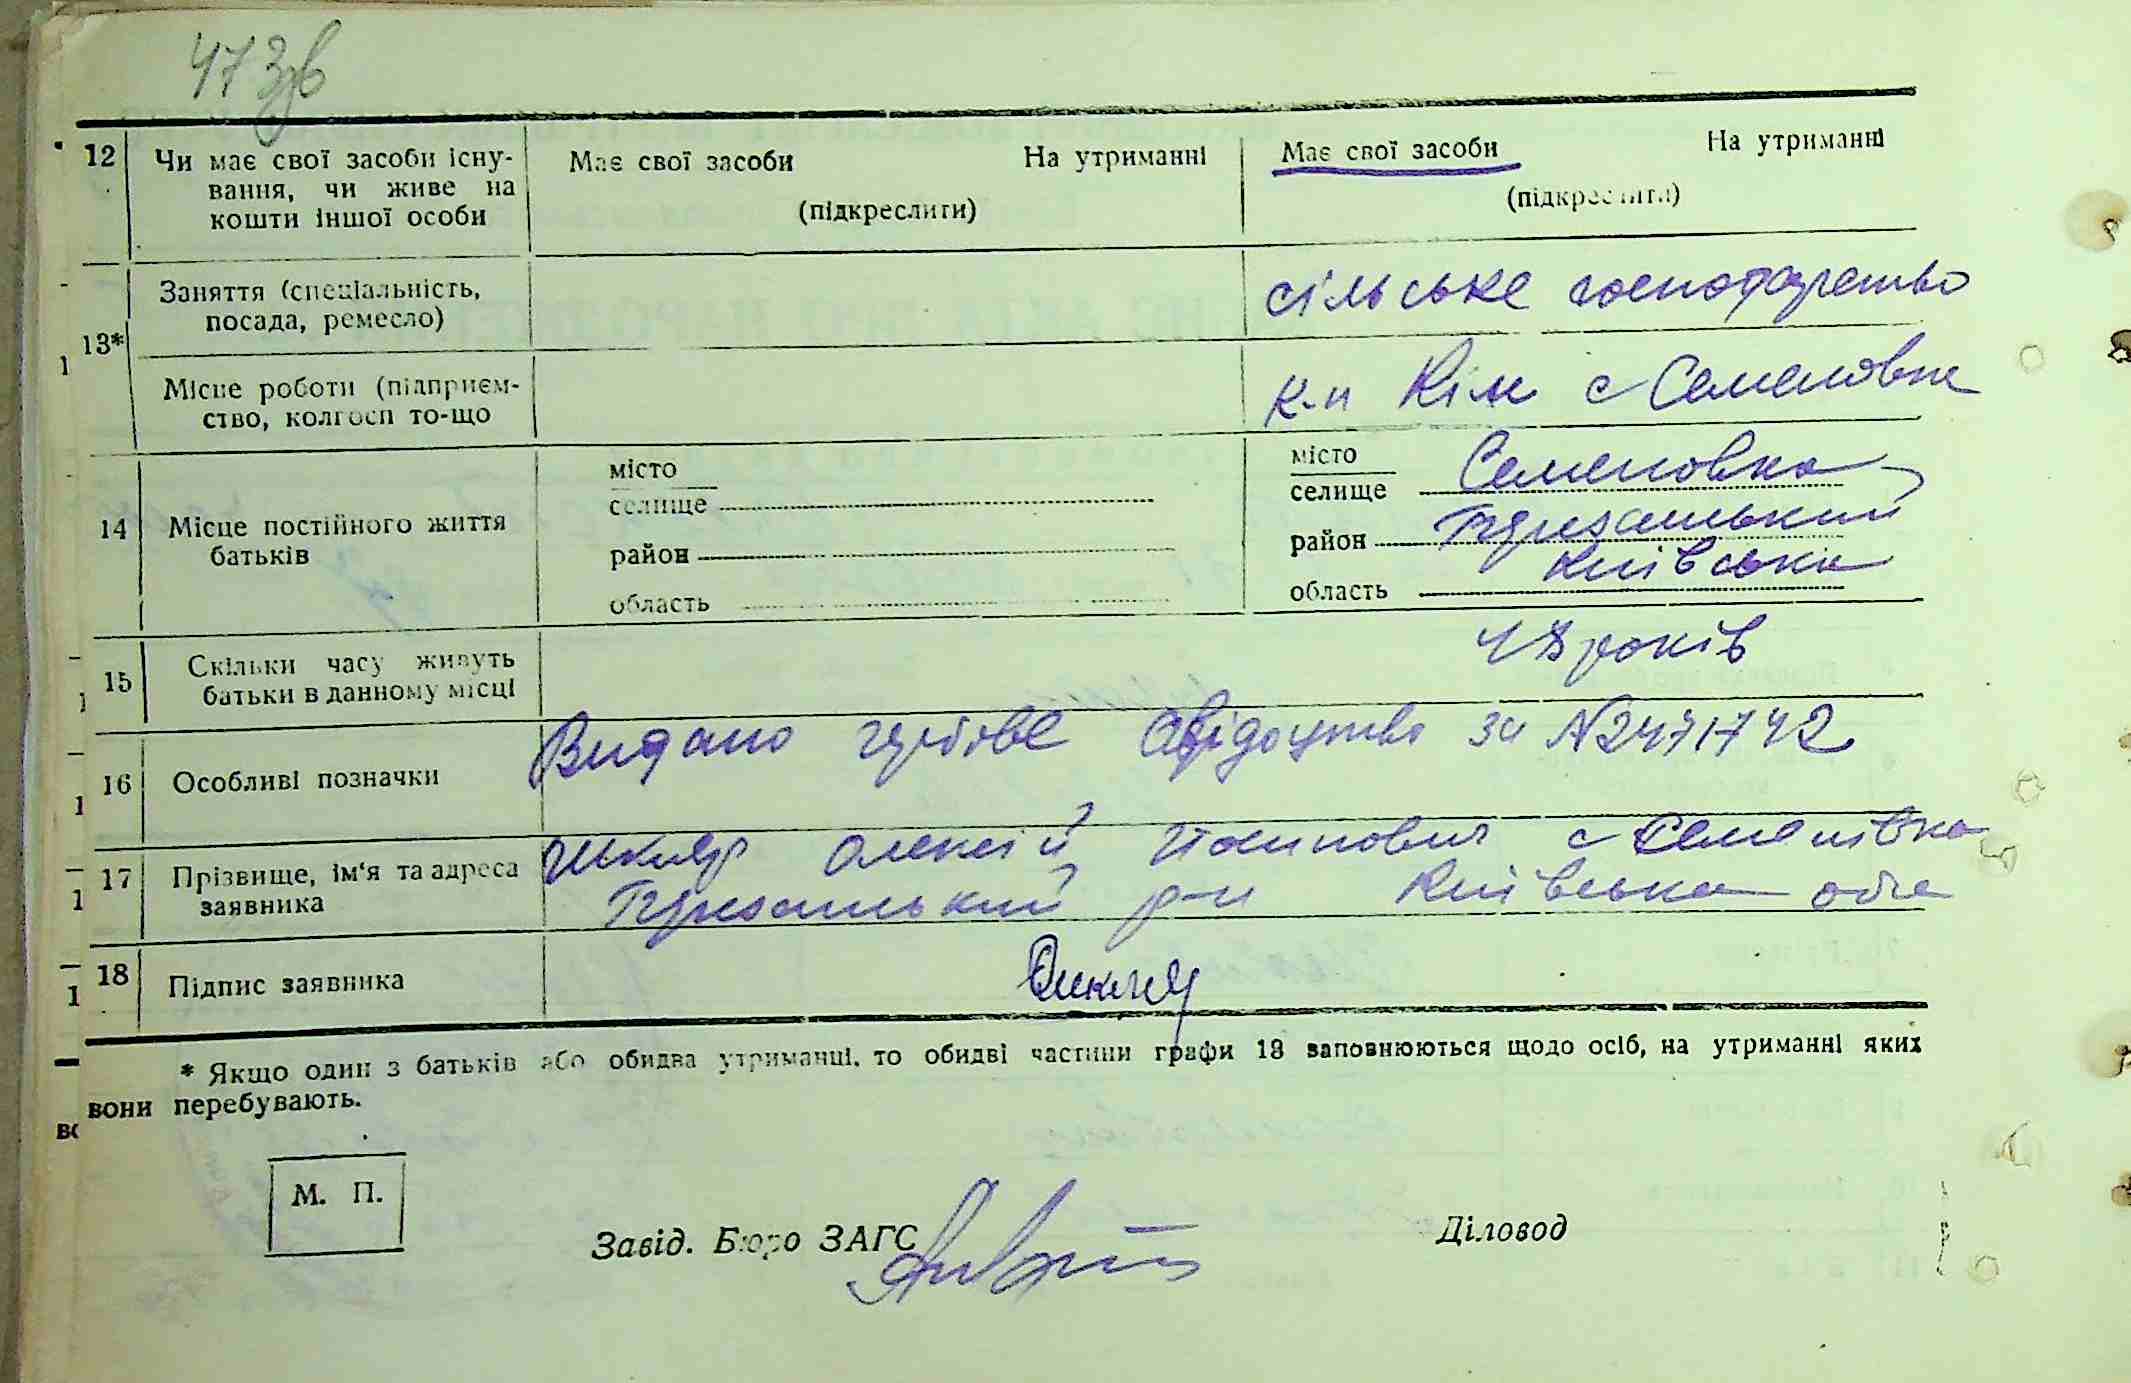 473зв
12 Чи має свої засоби існу-
вання, чи живе на
кошти іншої особи
Має свої засоби На утриманні
(підкреслити)
Має свої засоби На утриманні
(підкреслити)
13*
Заняття (спеціальність,
посада, ремесло)
сільське господарство
Місце роботи (підприєм-
ство, колгосп то-що
к-п Кім с Семеновка
14 Місце постійного життя
батьків
місто
селище
район
область
місто
селище Семеновка
район
область Київська
15 Скільки часу живуть
батьки в данному місці
48 років
16 Особливі позначки
Видано свідоцтво за N2471742
17 Прізвище, ім'я та адреса
заявника
Шкляр Олексій с Семенівка
р-н Київська обл
18 Підпис заявника
* Якщо один з батьків або обидва утриманці, то обидві частини графи 13 заповнюються щодо осіб, на утриманні яких
вони перебувають.
М. П.
Завід. Бюро ЗАГС
Діловод